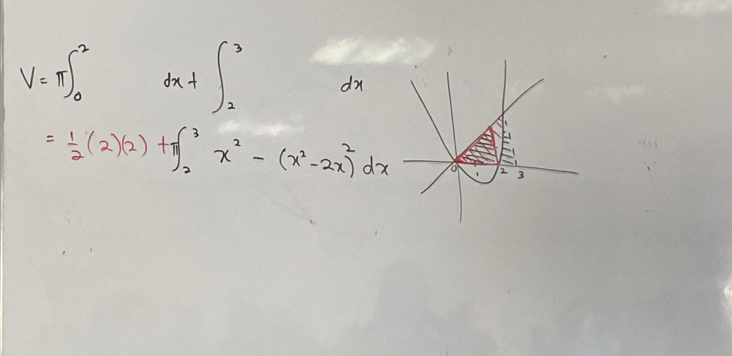 V = π∫₀² dx + ∫₂³ dx
= ½(2)(2) + π∫₂³ x² − (x² − 2x)² dx
0 1 2 3